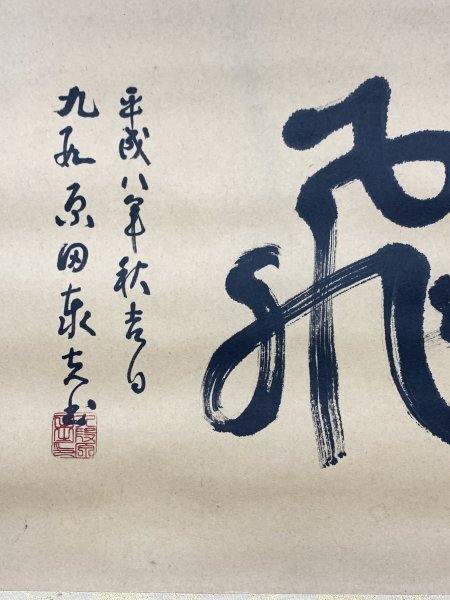 飛
平成八年秋吉日
九段 原田泰夫書